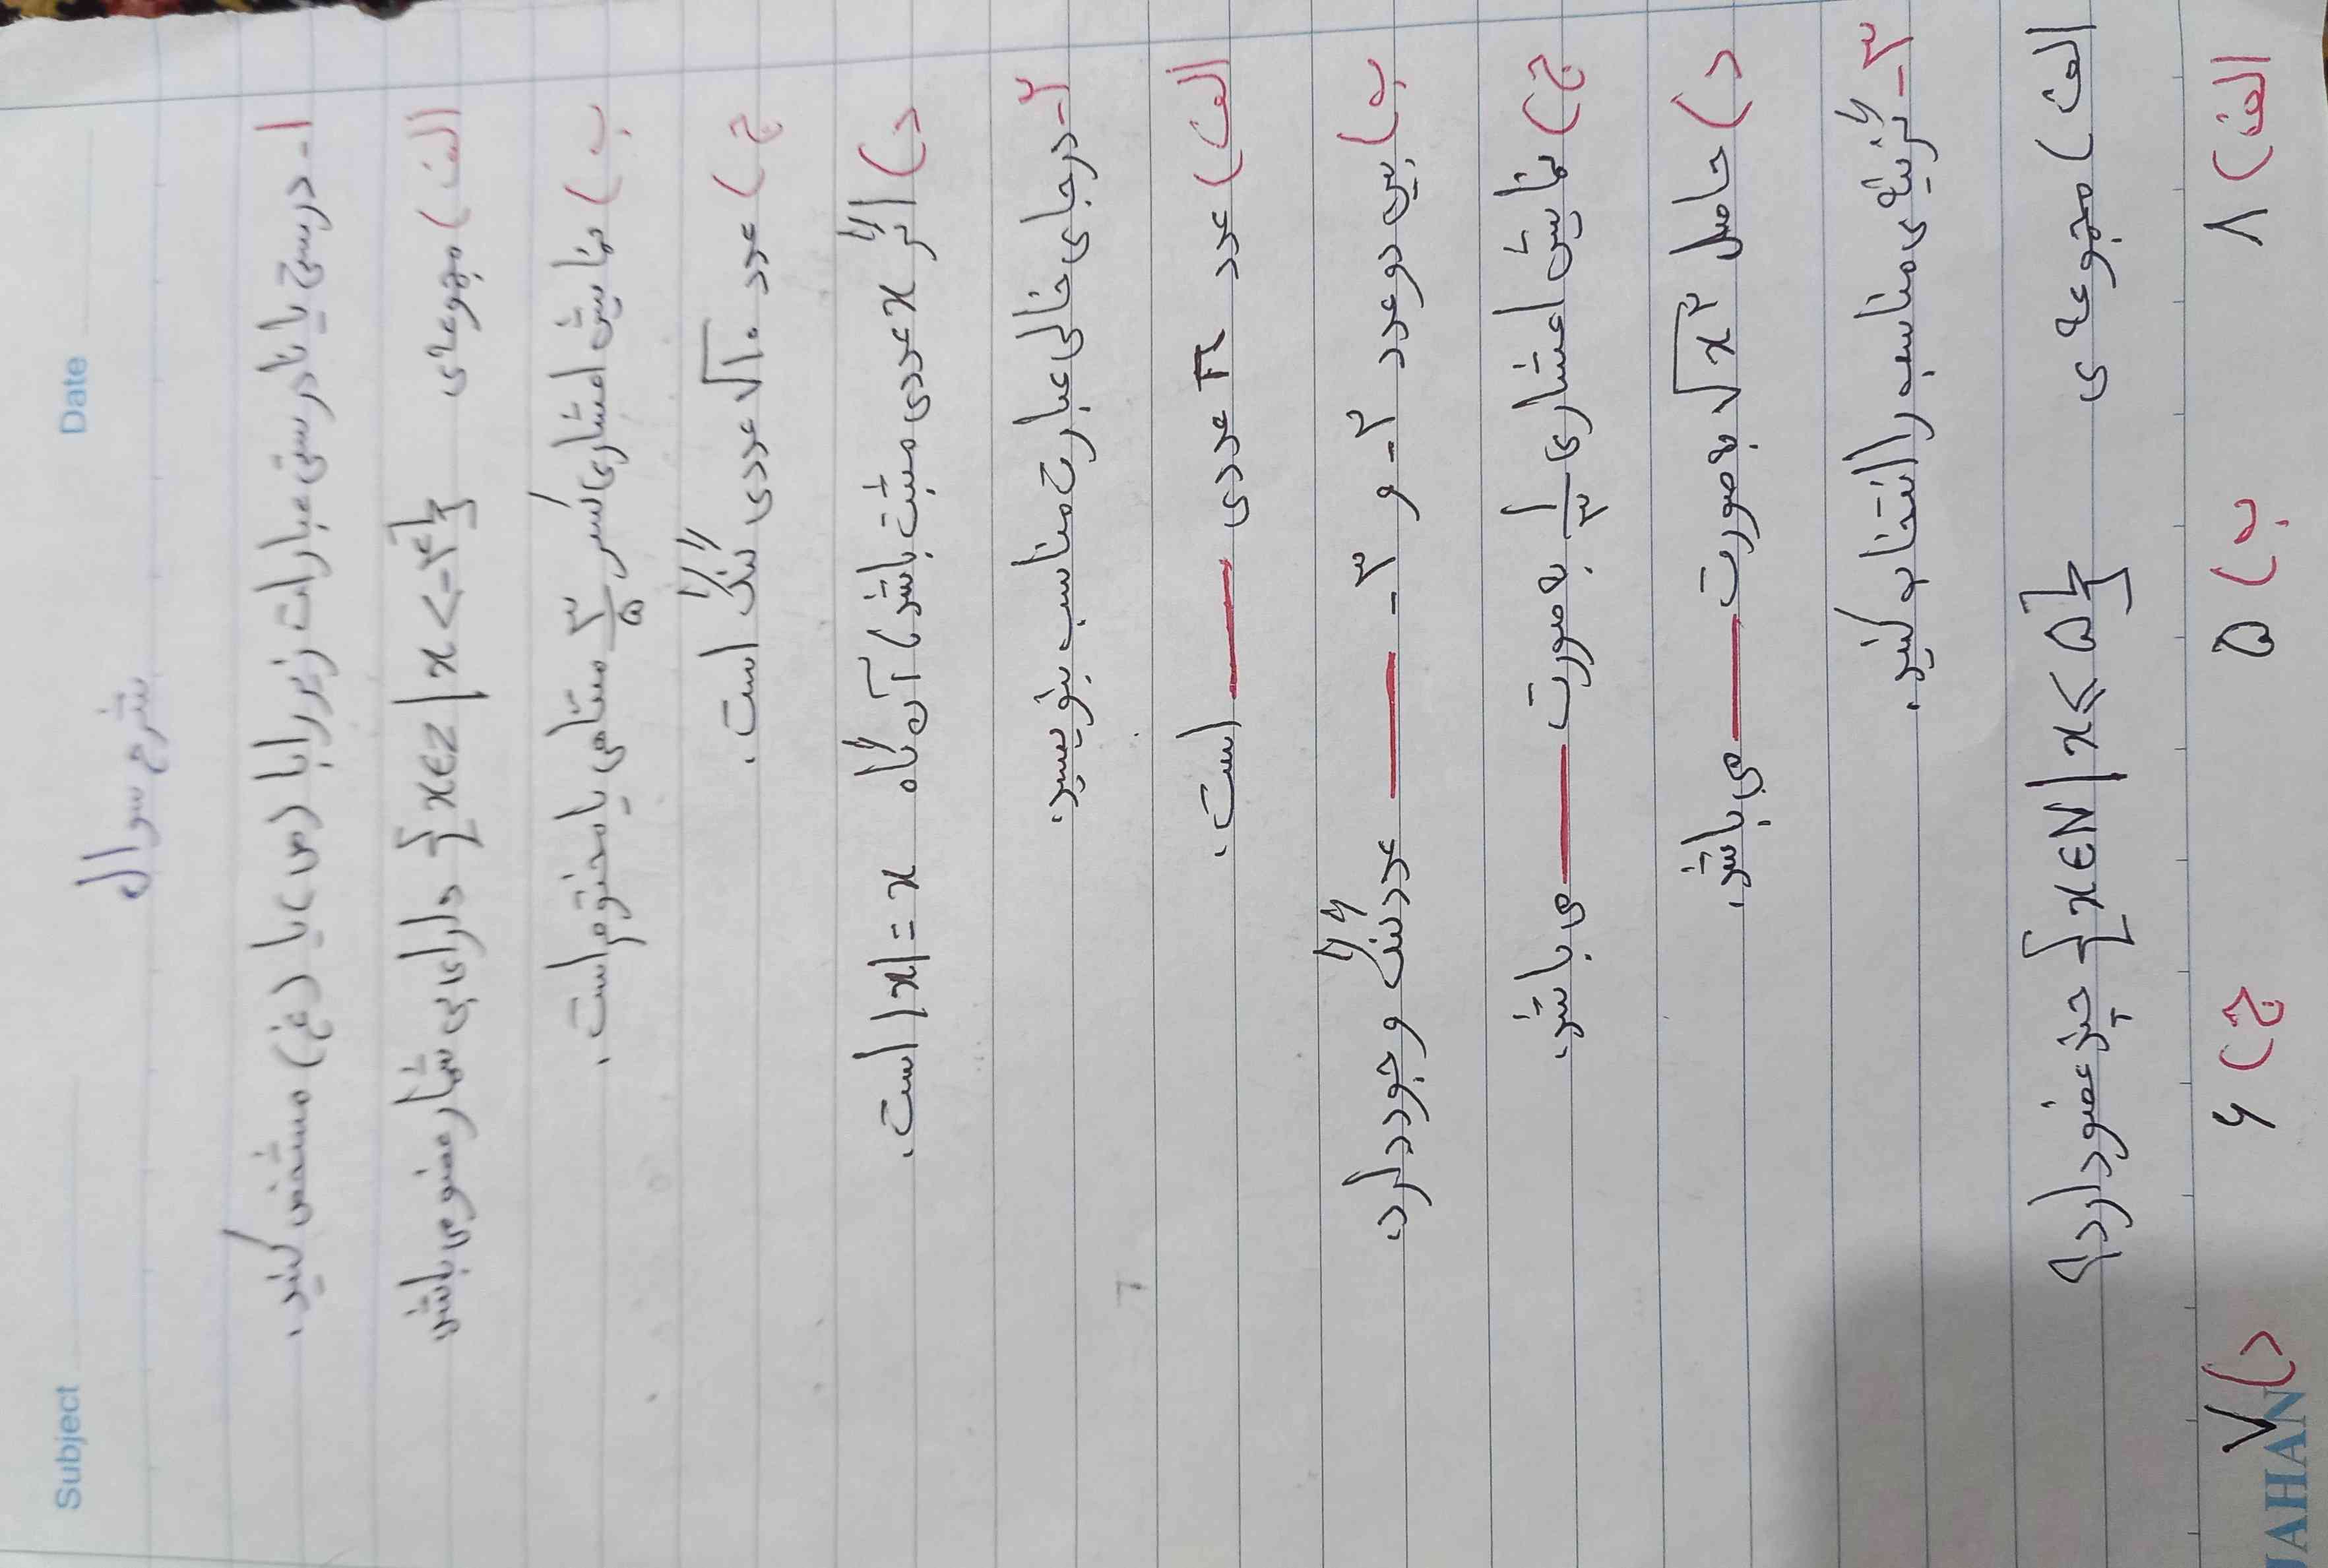 Subject
Date
شرح سوال
۱- درستی یا نادرستی عبارات زیر را با (ص) یا (غ) مشخص کنید.
الف) مجموعه‌ی {x∈Z | x<-۴} دارای بی شمار عضو می باشد
ب) نمایش اعشاری کسر ۳/۵ متناهی یا مختوم است.
ج) عدد √۱۰ عددی گنگ است.
د) اگر x عددی مثبت باشد، آن گاه |x|=x است.
۲- در جای خالی عبارت مناسب بنویسید.
الف) عدد π عددی ــــ است.
ب) بین دو عدد ۲- و ۳- ــــ عدد گنگ وجود دارد.
ج) نمایش اعشاری ۱/۳ به صورت ــــ می باشد.
د) حاصل √x۳ به صورت ــــ می باشد.
۳- گزینه‌ی مناسب را انتخاب کنید.
الف) مجموعه ی {x∈N | x≤۵} چند عضو دارد؟
الف) ۸ ب) ۵ ج) ۶ د) ۷
AHAN